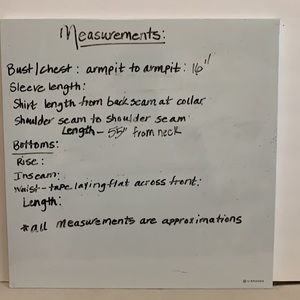 Measurements:
Bust/chest: armpit to armpit: 16"
Sleeve length:
Shirt length from back seam at collar
Shoulder seam to shoulder seam
Length - 55" from neck
Bottoms:
Rise:
Inseam:
Waist - tape laying flat across front:
Length:
*all measurements are approximations